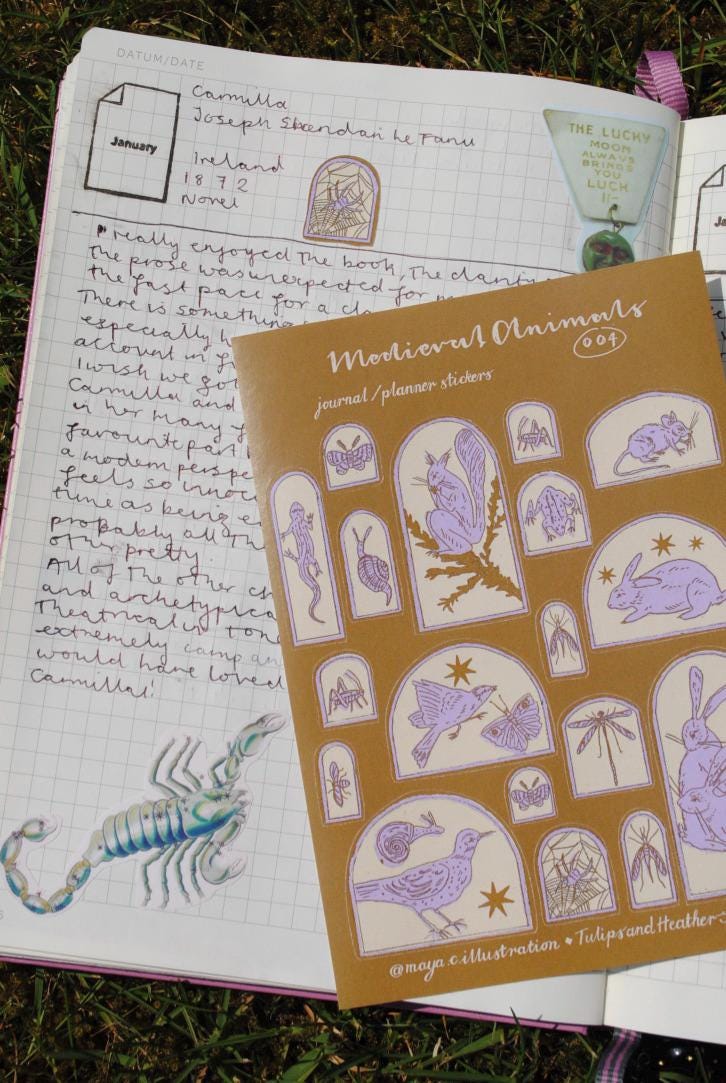 DATUM/DATE
January
Carmilla
Joseph Sheridan Le Fanu
Ireland
1872
Novel
THE LUCKY
MOON
ALWAYS
BRINGS
YOU
LUCK
I really enjoyed the book, The clarity
the prose was unexpected for
the fast pace for a
There is something
especially
account in
I wish we
Carmilla and
in her many
favourite part
a modern
feels so
time as being
probably all
other pretty.
All of the other
and archetypical
Theatrical in tone
extremely camp
would have loved
Carmilla!
Medieval Animals
004
journal/planner stickers
@maya.c.illustration • Tulips and Heather